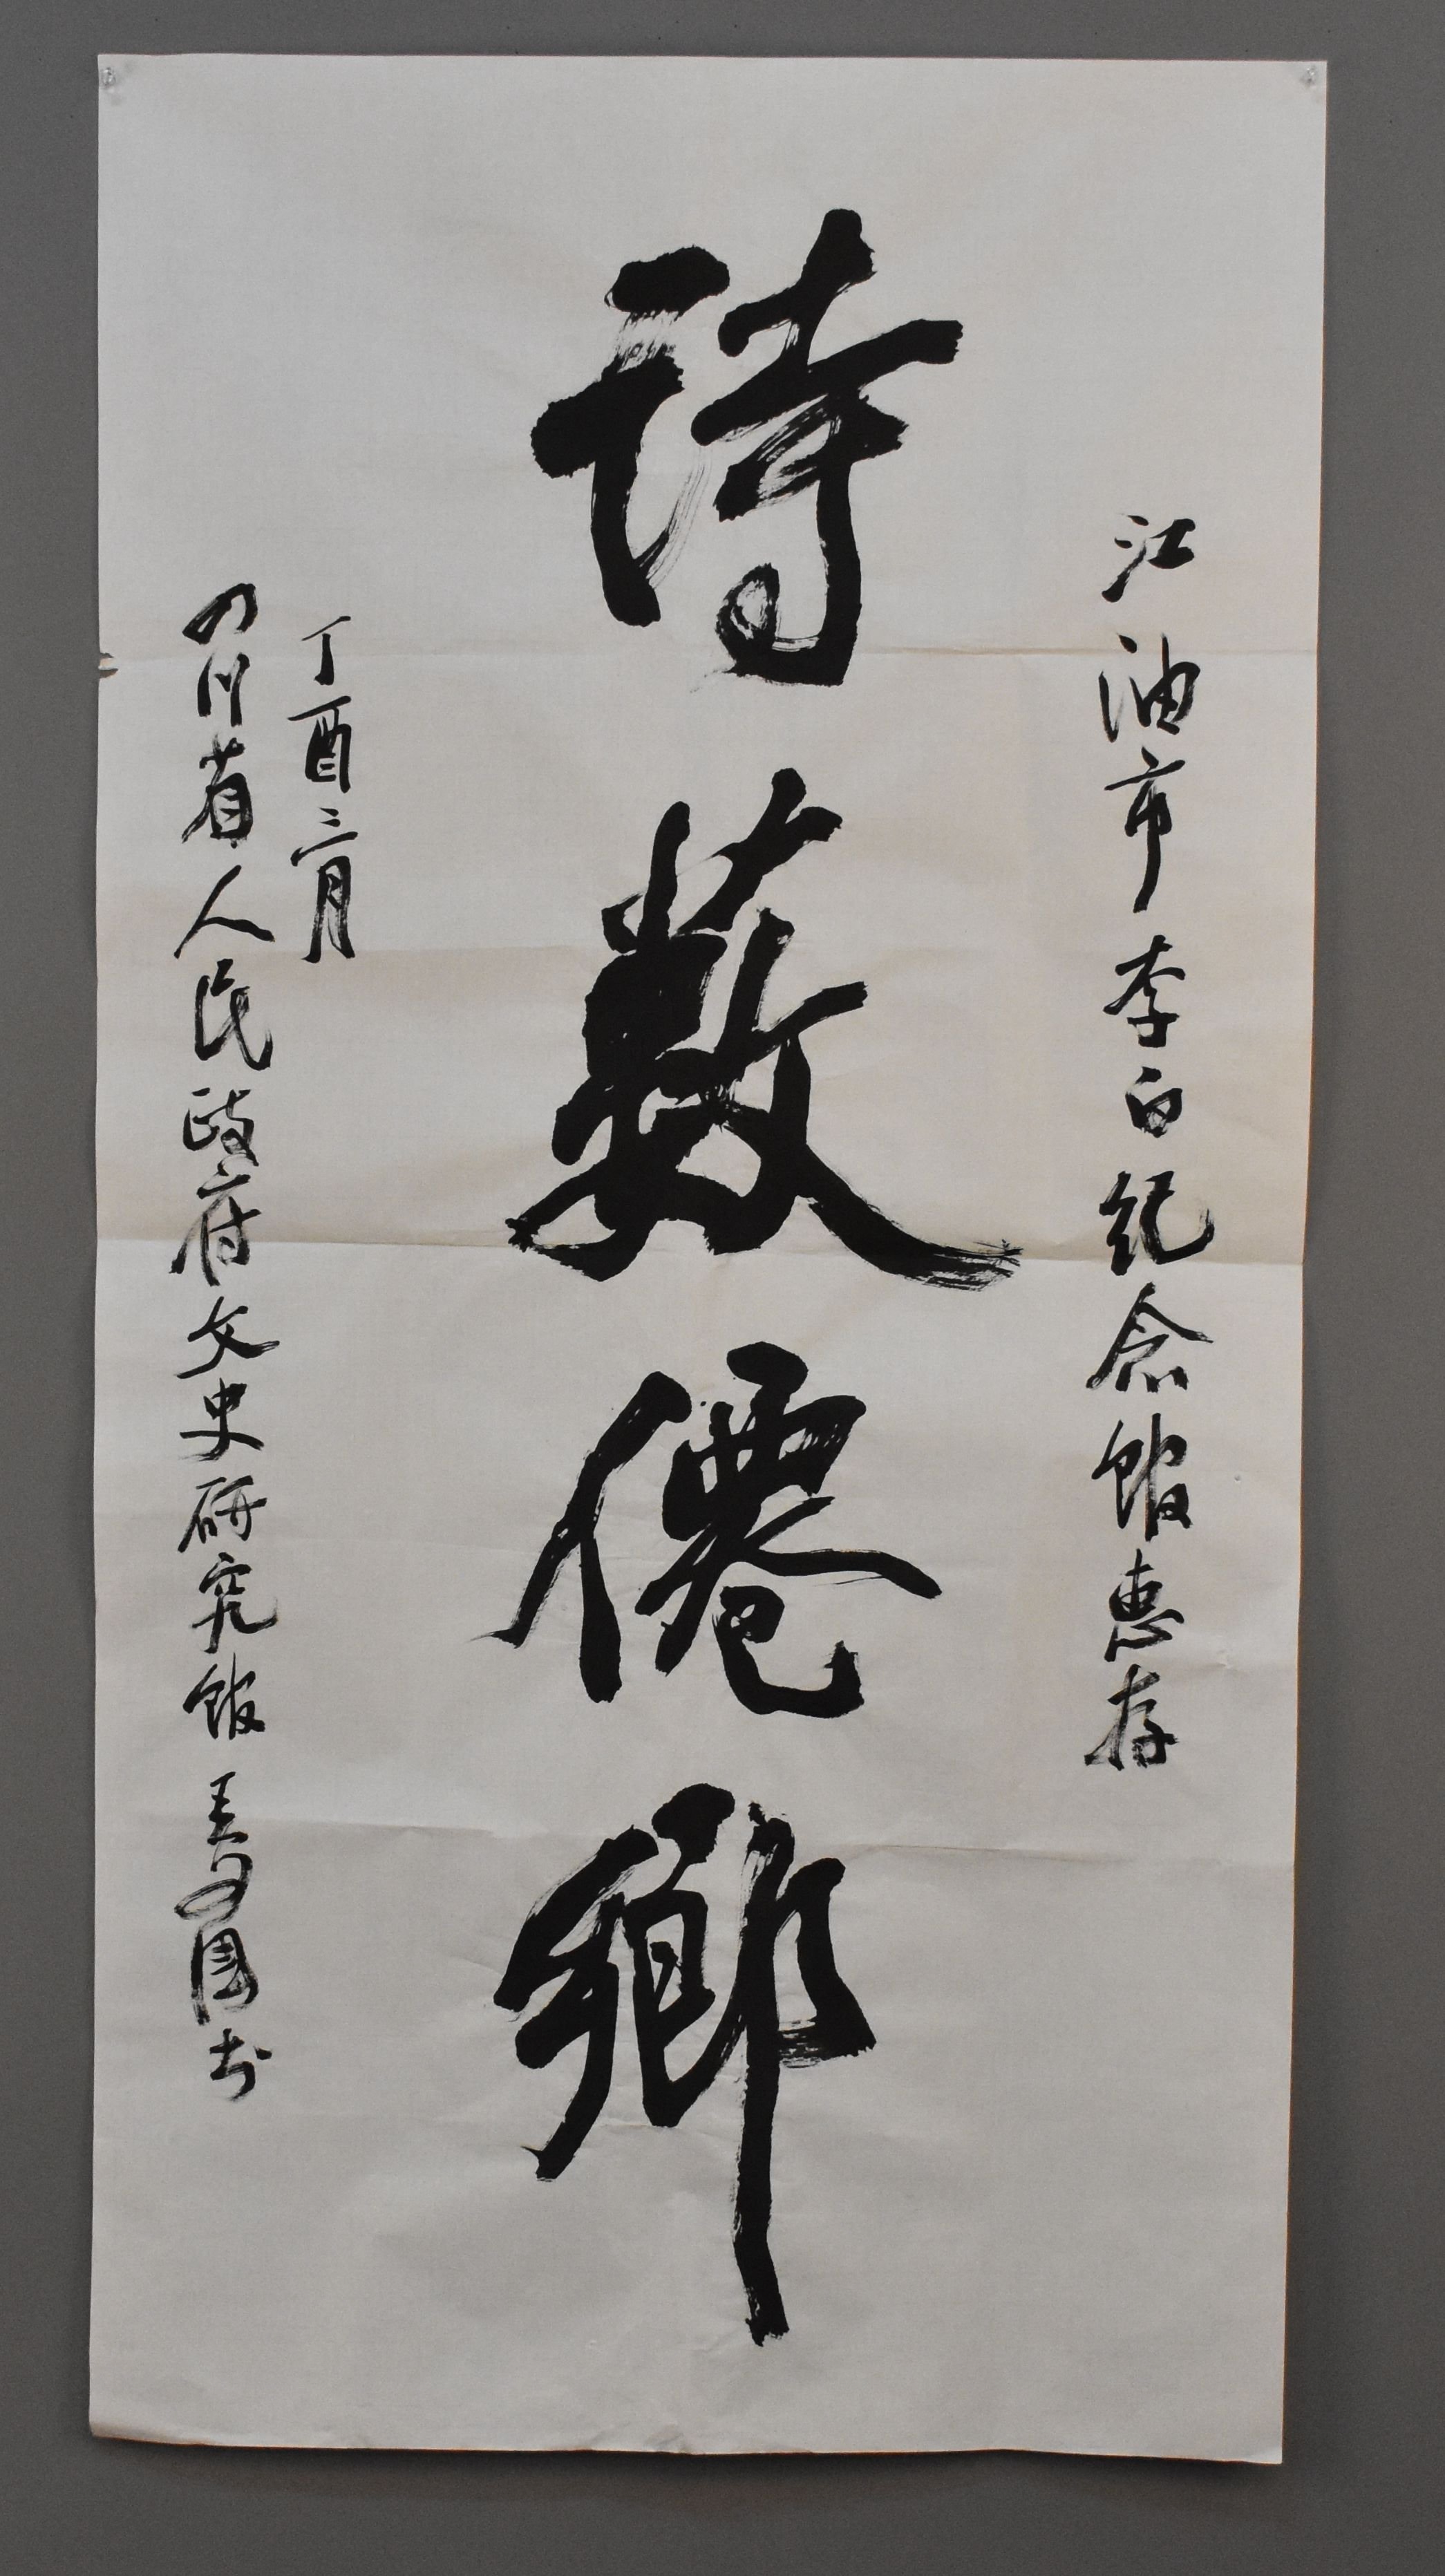 江油市李白紀念館惠存
詩藪僊鄉
丁酉三月
四川省人民政府文史研究館 王國书